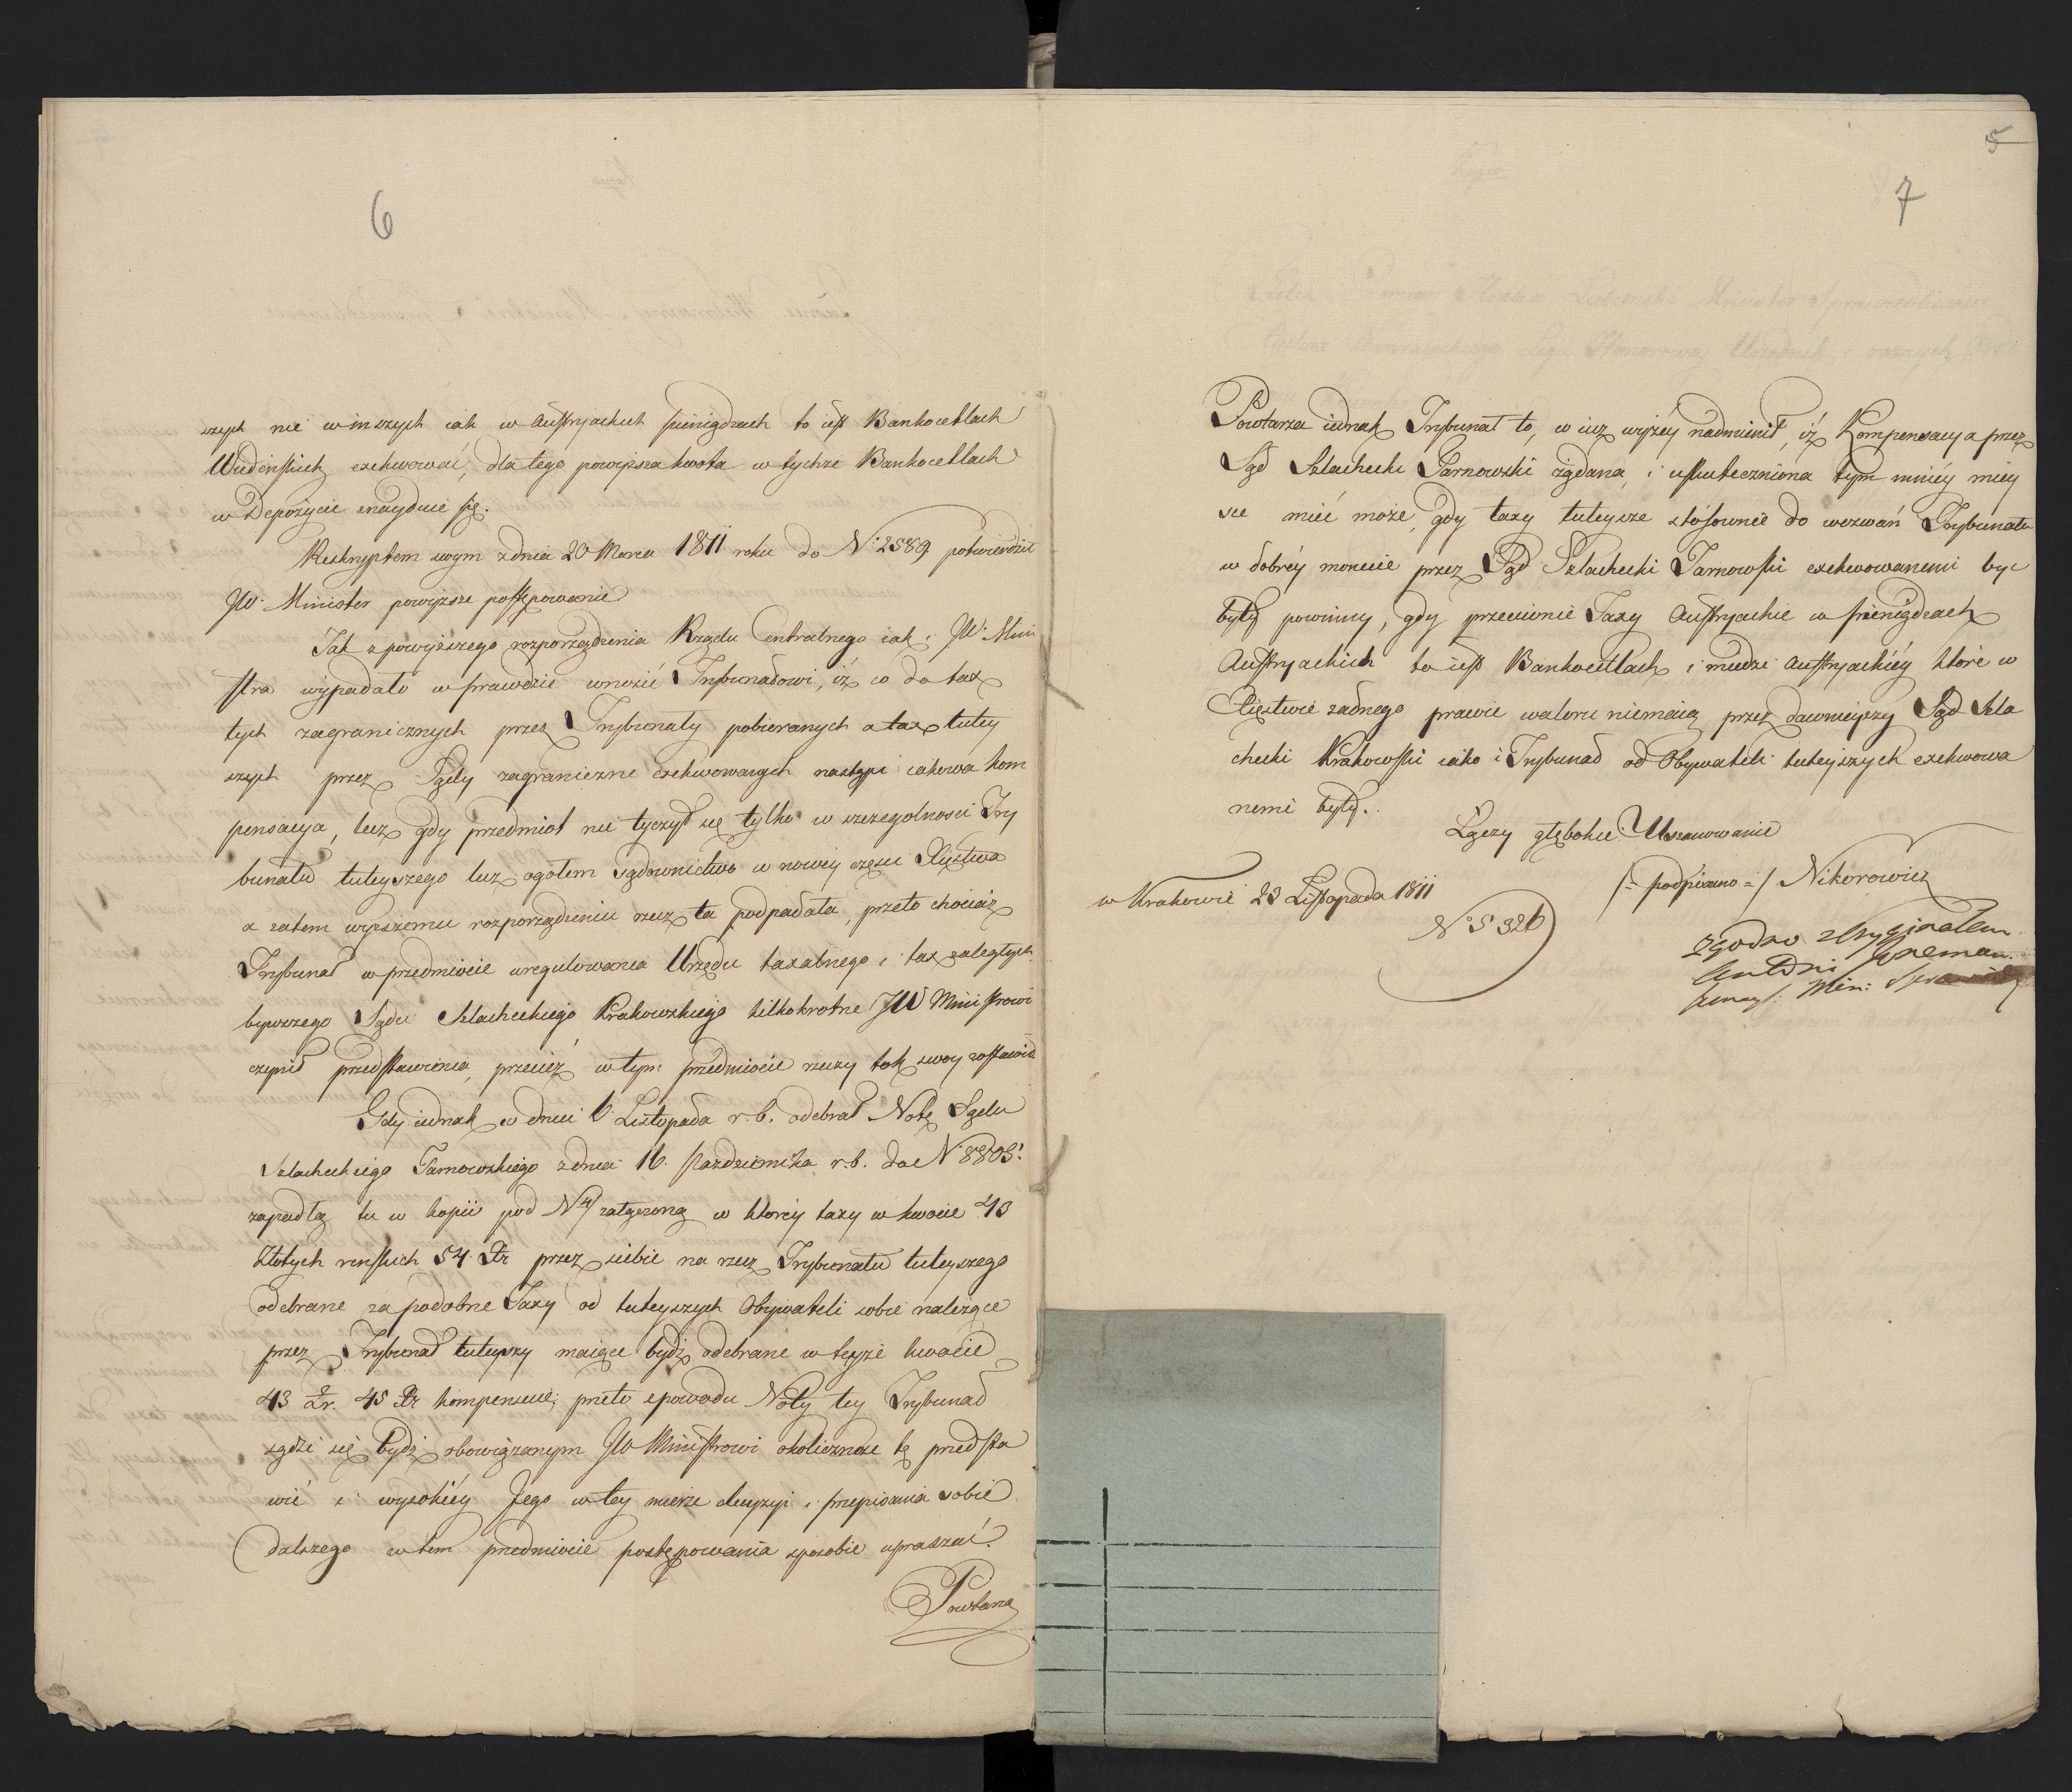 6
szych nie w inszych iak w Austryackich pieniądzach to iest Bankocetlach
Wiedeńskich exekwować, dla tego powyższa kwota w tychże Bankocetlach
w Depozycie znayduie się.
Reskryptem swym z dnia 20 Marca 1811 roku do N: 2589 potwierdził
JW: Minister powyższe postępowanie
Jak z powyższego rozporządzenia Rządu Centralnego iak i JW: Mini
stra wypadało w prawdzie wnosić Trybunałowi, iż co do tax
tych zagranicznych przez Trybunały pobieranych a tax tutey
szych przez Sądy zagraniczne exekwowanych nastąpi iakowa kom
pensacya, lecz gdy przedmiot nie tyczył się tylko w szczegolnosci Try
bunału tuteyszego lecz ogółem Sądownictwo w nowey części Xięstwa
a zatem wyższemu rozporządzeniu rzecz ta podpadała, przeto chociaż
Trybunał w przedmiocie uregulowania Urzędu taxalnego i tax zaległych
bywszego Sądu Szlacheckiego Krakowskiego kilkokrotne JW Ministrowi
czynił przedstawienia, przecież w tym przedmiocie rzeczy tok swoy zostawił
Gdy iednak w dniu 6 Listopada r. b. odebrał Notę Sądu
Szlacheckiego Tarnowskiego z dnia 16. Pazdziernika r. b. do N: 8803.
zapadłą tu w kopii pod N 4/ załączoną w ktorey taxy w kwocie 43
Złotych reńskich 54 Xr przez siebie na rzecz Trybunału tuteyszego
odebrane za podobne Taxy od tuteyszych Obywateli sobie należące
przez Trybunał tuteyszy maiące bydź odebrane w teyże kwocie
43 Zr. 45 Xr kompensuie, przeto z powodu Noty tey Trybunał
sądzi się bydź obowiązanym JW Ministrowi okoliczność tę przedsta
wić i wysokiéy Jego w tey mierze decyzyi i przepisania sobie
dalszego w tem przedmiocie postępowania sposobie upraszać.
Powtarza
5
7
Powtarza iednak Trybunał to, co iuż wyżéy nadmienił, iż Kompensacya przez
Sąd Szlachecki Tarnowski żądana, i uskuteczniona tym mniéy miey
sce mieć może, gdy taxy tuteysze stósownie do wezwań Trybunału
w dobréy monecie przez Sąd Szlachecki Tarnowski exekwowanemi być
były powinny, gdy przeciwnie Taxy Austryackie w pieniądzach
Austryackich to iest Bankocetlach i miedzi Austryackiéy które w
Xięstwie żadnego prawie waloru niemaią przez dawnieyszy Sąd Szla
checki Krakowski iako i Trybunał od Obywateli tuteyszych exekwowa
nemi były.
Łączy głębokie Uszanowanie
w Krakowie 23 Listopada 1811
/= podpisano =/ Nikorowicz
N: 5326
Zgodno z Orygjnałem
Antoni
Min: